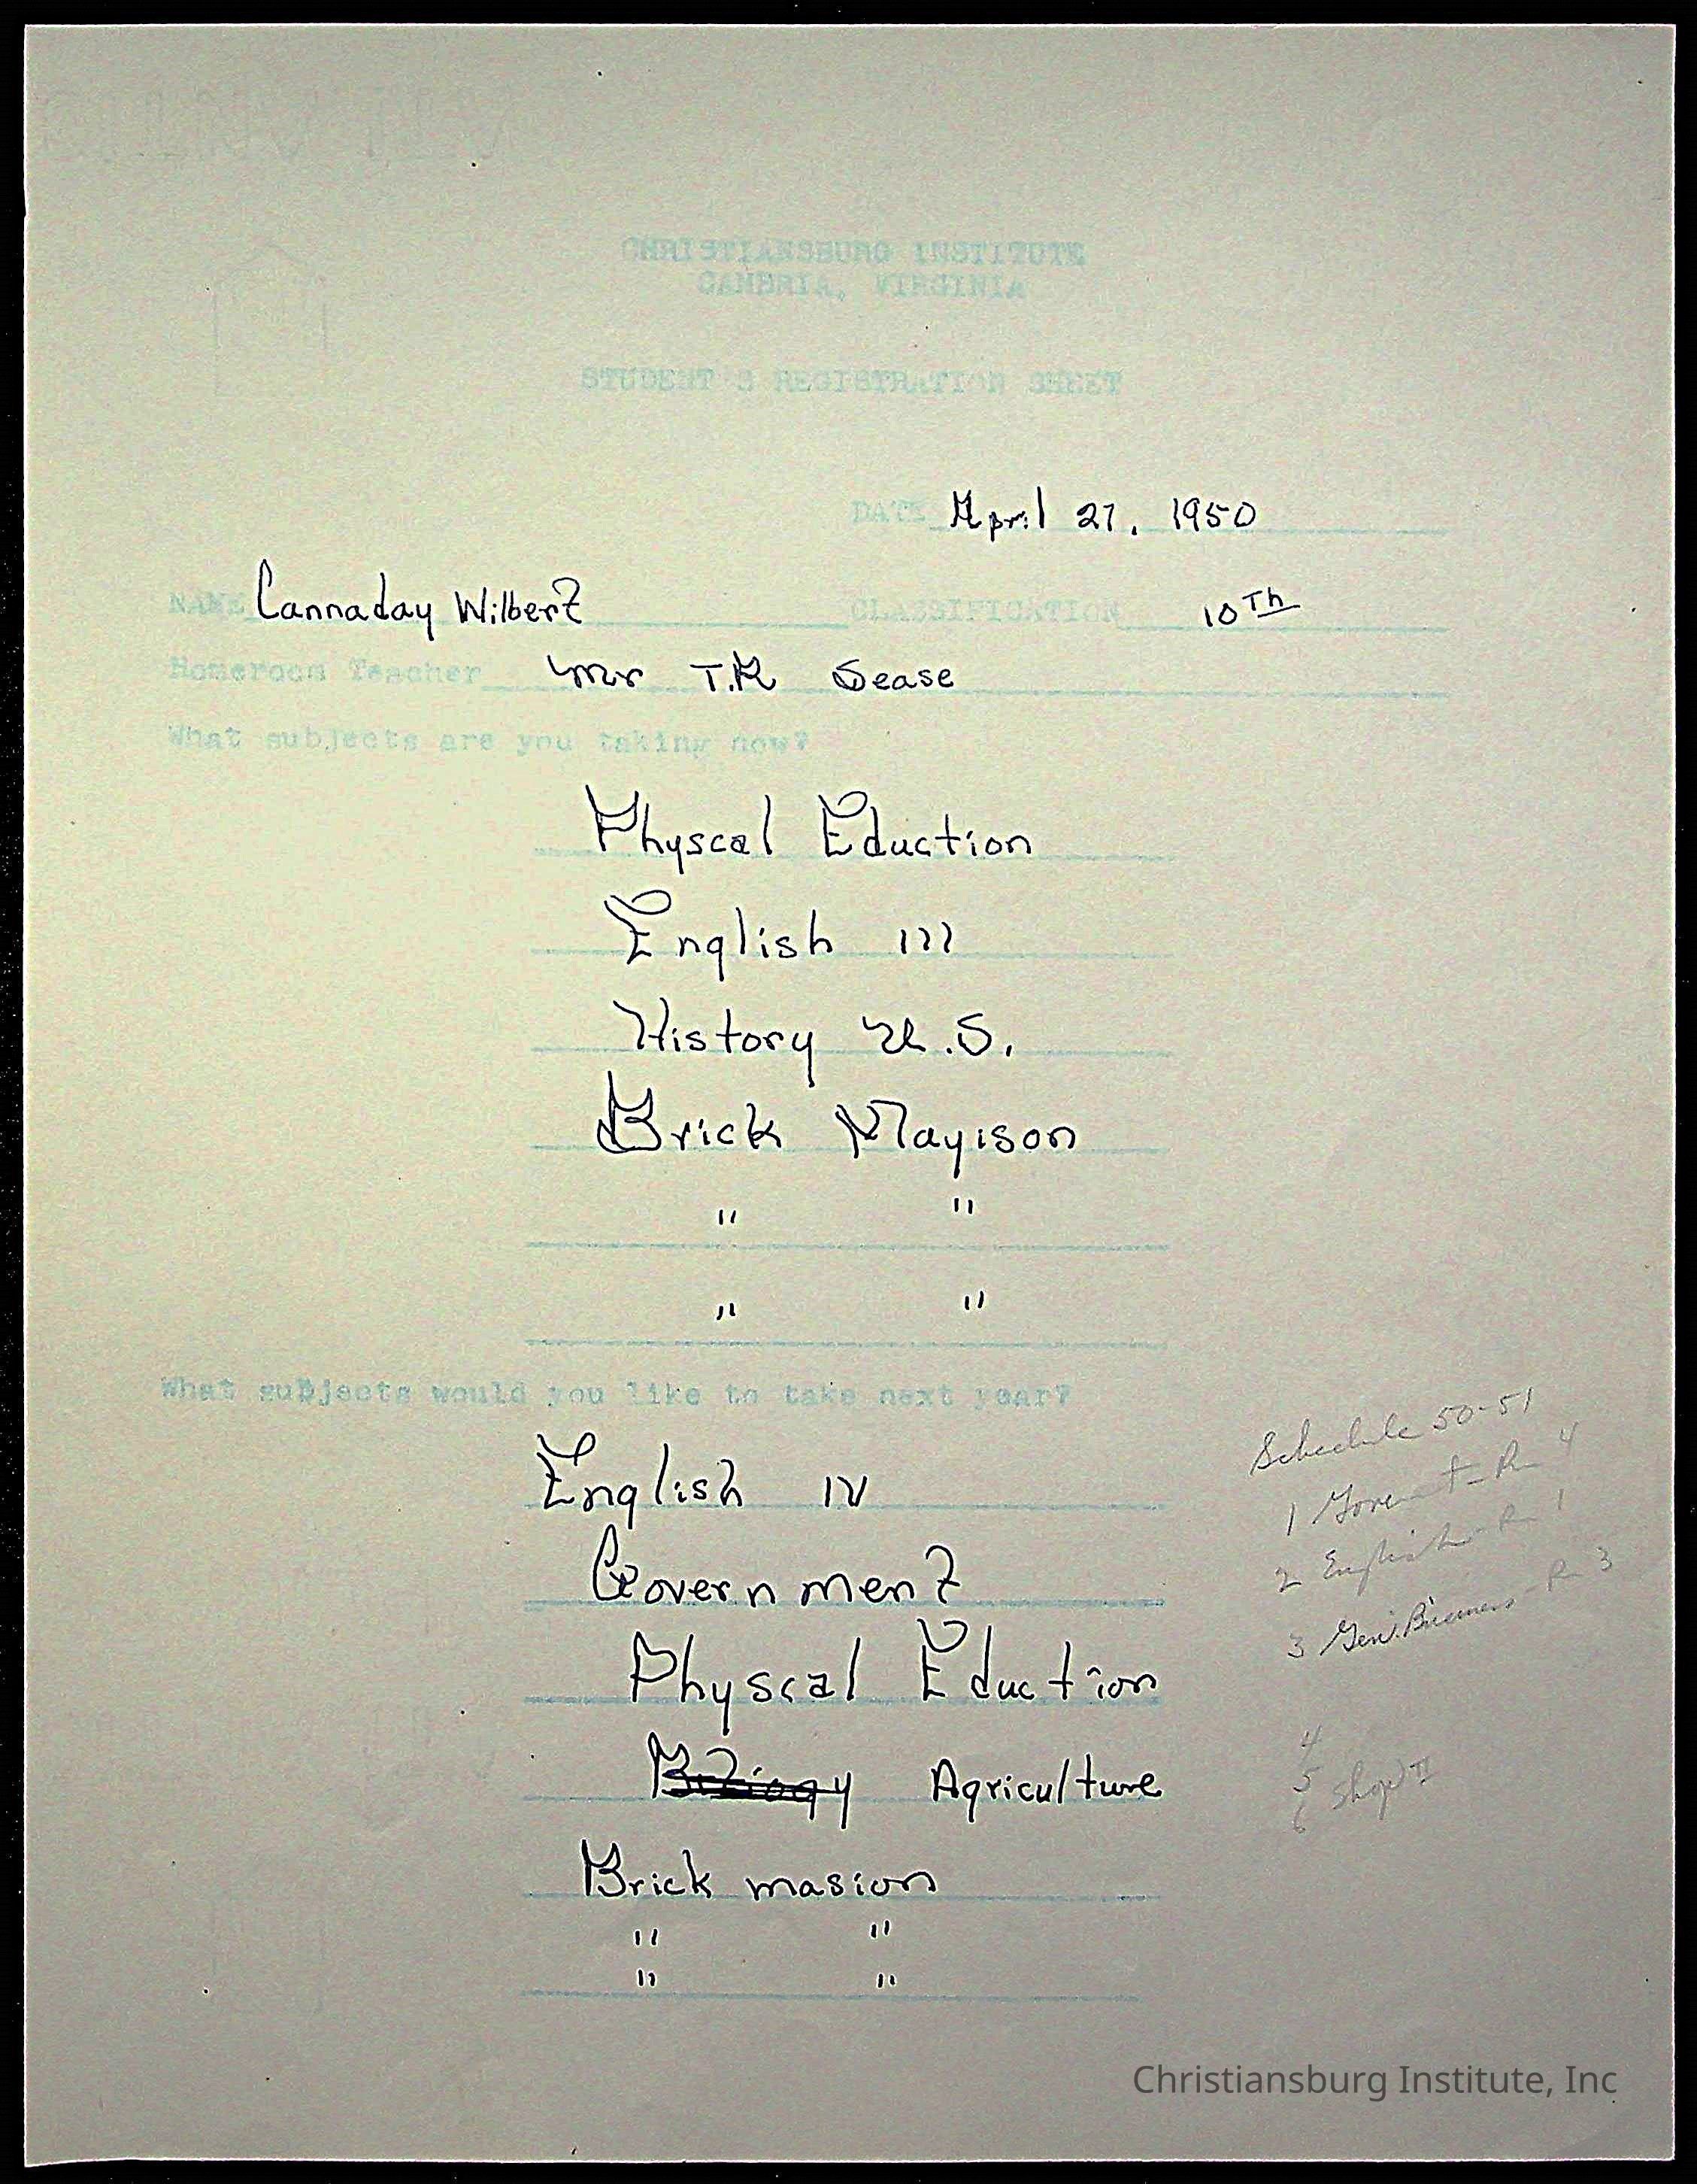 CHRISTIANSBURG INSTITUTE
CAMBRIA, VIRGINIA
STUDENT'S REGISTRATION SHEET
DATE April 27, 1950
NAME Cannaday Wilbert CLASSIFICATION 10Th
Homeroom Teacher Mr T.R Sease
What subjects are you taking now?
Physcal Eduction
English III
History U.S.
Brick Mayison
" "
" "
What subjects would you like to take next year?
English IV
Government
Physcal Eduction
Agriculture
Brick masion
" "
" "
Schedule 50-51
1 R 4
2 English R 1
3 Gen. R 3
4
5 Shop II
6
Christiansburg Institute, Inc